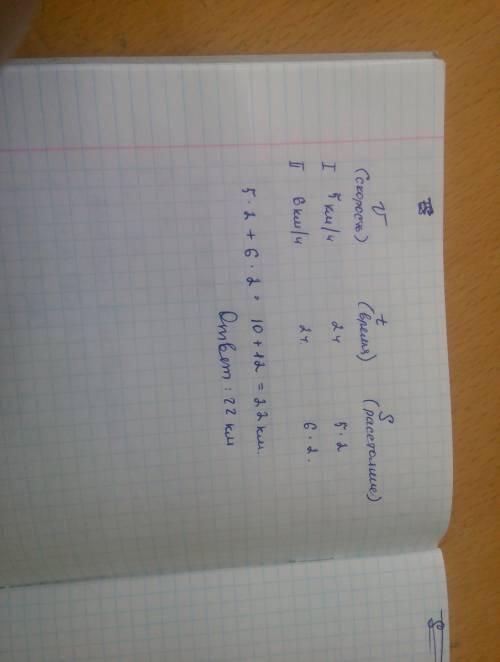 V t S
(скорость) (время) (расстояние)
I 5 км/ч 2ч 5·2
II 6 км/ч 2ч. 6·2.
5·2 + 6·2 = 10 + 12 = 22 км.
Ответ: 22 км